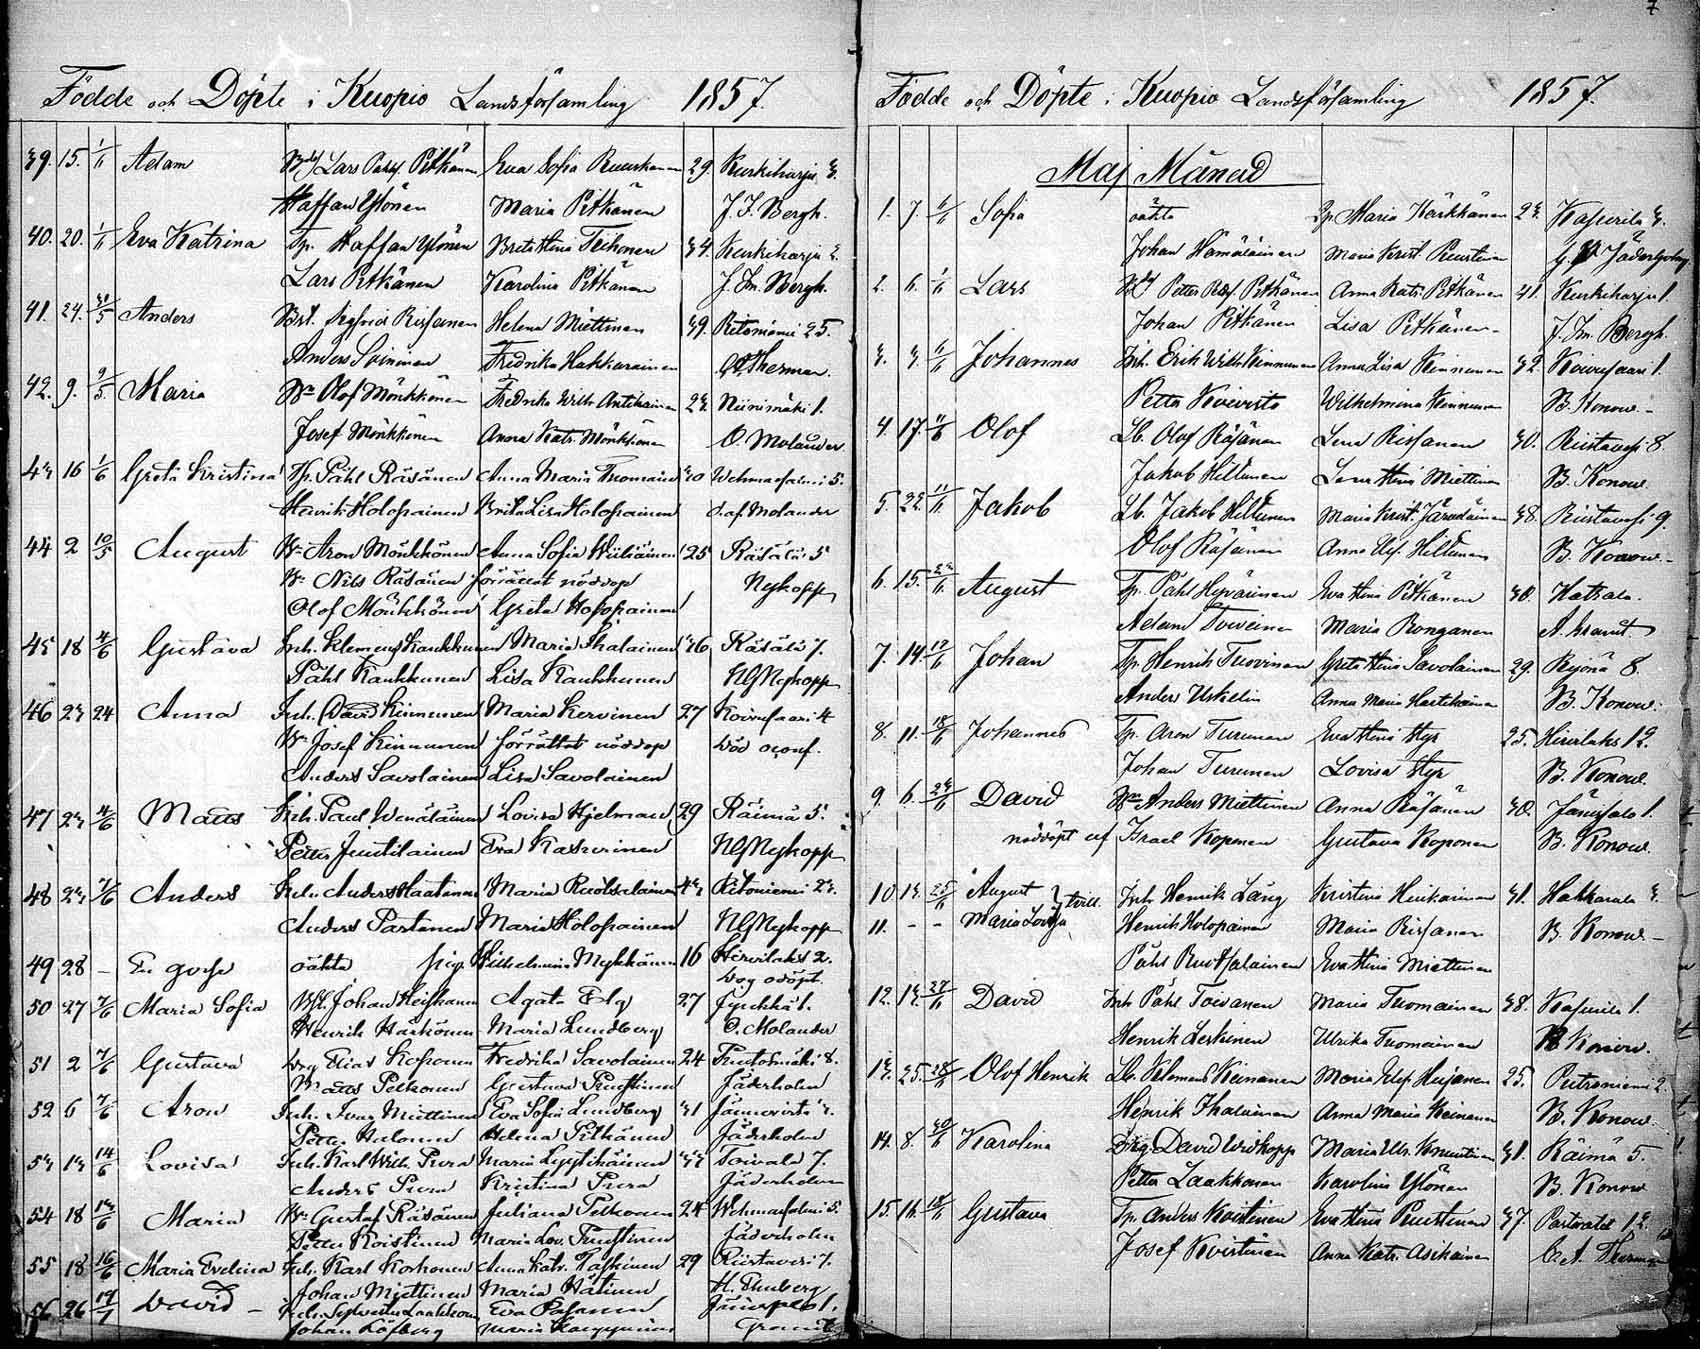 Födde och Döpte i Kuopio Landsförsamling 1857.
39. 15. Adam Lars Pitkänen Eva Sofia Ruuskanen 29. Kurkiharju 3.
Staffan Ylönen Maria Pitkänen J. I. Bergh.
40. 20. Eva Katrina Tp. Staffan Ylönen Brita Stina Tiihonen 34. Kurkiharju 2.
Lars Pitkänen Karolina Pitkänen J. Im. Bergh.
41. 24. 31/5 Anders Sigfrid Rissanen Helena Miettinen 39. Ritoniemi 25.
Anders Soininen Fredrika Hakkarainen Therman.
42. 9. 9/5 Maria Olof Mönkkönen Fredrika Wilh. Antikainen 23. Niinimäki 1.
Josef Mönkkönen Anna Katr. Mönkkönen O. Molander
43 16 1/6 Greta Kristina Påhl Räsänen Anna Maria Tuomainen 30 Wehmasalmi 5.
Henrik Holopainen Brita Lisa Holopainen O. af Molander
44 2 10/5 August Aron Mönkkönen Anna Sofia 25 Räsälä 5
Nils Räsänen förrättat nöddop Nykopp
Olof Mönkkönen Greta Holopainen
45 18 4/6 Gustava Inh. Klemens Kaukkunen Maria Ihalainen 36 Räsälä 7.
Påhl Kaukkunen Lisa Kaukkunen NGNykopp
46 23 24 Anna Inh. David Kinnunen Maria Kervinen 27 Koivusaari 4
Josef Kinnunen förrättat nöddop
Anders Savolainen Lisa Savolainen
47 23 4/6 Matts Inh. Paul Wenäläinen Lovisa Hjelman 29 Räimä 5.
Petter Juutilainen Eva Kaswrinen NGNykopp
48 23 7/6 Anders Inh. Anders Haatanen Maria Ruotsalainen 43 Ritoniemi 23.
Anders Partanen Maria Holopainen NGNykopp
49 28 – En gosse oäkta pig. Wilhelmina Mykkänen 16 Hirvilaks 2.
dog odöpt.
50 27 7/6 Maria Sofia Johan Heiskanen Agata Elg 27 Jynkkä 1.
Henrik Härkönen Maria Lundberg O. Molander
51 2 7/6 Gustava Elias Koponen Fredrika Savolainen 24 Puutosmäki 8.
Matts Pelkonen Gustava Puustinen Jäderholm
52 6 7/6 Aron Inh. Ivar Miettinen Eva Sofia Lundberg 31 Jännevirta 3.
Petter Halonen Helena Pitkänen Jäderholm
53 13 14/6 Lovisa Inh. Karl Wilh. Pura Maria Lyytikäinen 33 Toivala 7.
Anders Pura Kristina Pura Jäderholm
54 18 14/6 Maria Gustaf Räsänen Juliana Pelkonen 24 Wehmasalmi 5.
Petter Koistinen Maria Lov. Puustinen Jäderholm
55 18 16/6 Maria Evelina Inh. Karl Korhonen Anna Katr. Kaskinen 29 Riistavesi 7.
Johan Miettinen Maria Hätinen H. Thuberg
56 26 19/7 David – Inh. Sylvester Laakkonen Eva Pasanen Jänissalo 1.
Johan Löfberg Maria Granit
7
Födde och Döpte i Kuopio Landsförsamling 1857.
Maj Månad
1. 7. Sofia oäkta Maria Kärkkänen 23. Kasurila 3.
Johan Hämäläinen Maria Krist. Puustinen Jäderholm
2. 6. Lars Petter Pitkänen Anna Katr. Pitkänen 41. Kurkiharju 1.
Johan Pitkänen Lisa Pitkänen J. Im. Bergh.
3. 3. Johannes Inh. Erik Wilh. Kinnunen Anna Lisa Kinnunen 32. Koivusaari 1.
Petter Koivisto Wilhelmina Kinnunen B. Konow.
4. 17. Olof Lb. Olof Räsänen Lena Rissanen 30. Riistavesi 8.
Jakob Hiltunen Lena Stina Miettinen B. Konow
5. 22. Jakob Lb. Jakob Hiltunen Maria Krist. 38. Riistavesi 9.
Olof Räsänen Anna Ulr. Hiltunen B. Konow
6. 15. August Tp. Påhl Hyvärinen Eva Stina Pitkänen 30. Katsala.
Adam Toivainen Maria Ronganen A. Granit
7. 14. Johan Tp. Henrik Tuovinen Greta Stina Savolainen 29. Ryönä 8.
Anders Uskelin Anna Maria Hartikainen B. Konow.
8. 11. Johannes Tp. Aron Turunen Eva Stina Hyr 25. Hirvilaks 12.
Johan Turunen Lovisa Hyr B. Konow.
9. 6. David Anders Miettinen Anna Räsänen 30. Jänissalo 1.
nöddöpt af Israel Koponen Gustava Koponen B. Konow.
10. 13. 25/5 August } tvill. Inh. Henrik Läng Kristina Heiskainen 41. Hakkarala 3.
11. – – Maria Lovisa Henrik Holopainen Maria Rissanen B. Konow –
Påhl Ruotsalainen Eva Stina Miettinen
12. 13. David Inh. Påhl Toivanen Maria Tuomainen 38. Kasurila 1.
Henrik Leskinen Ulrika Tuomainen B. Konow.
13. 25. Olof Henrik Lb. Klemens Keinanen Maria Elis. Hujanen 25. Putroniemi 2.
Henrik Ihalainen Anna Maria Keinanen B. Konow.
14. 8. Karolina David Widkopp Maria Ulr. 31. Räimä 5.
Petter Laakkonen Karolina Ylönen B. Konow
15. 16. Gustava Tp. Anders Koistinen Eva Stina Puustinen 37. 12.
Josef Koistinen Anna Katr. Asikainen C. A. Therman